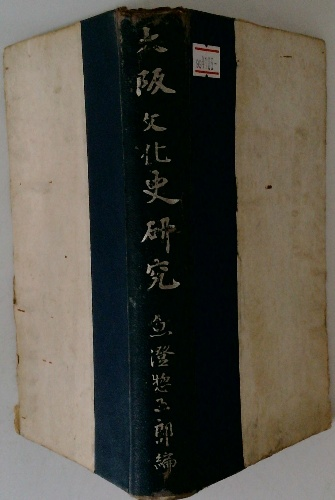 大阪文化史研究
魚澄惣五郎編